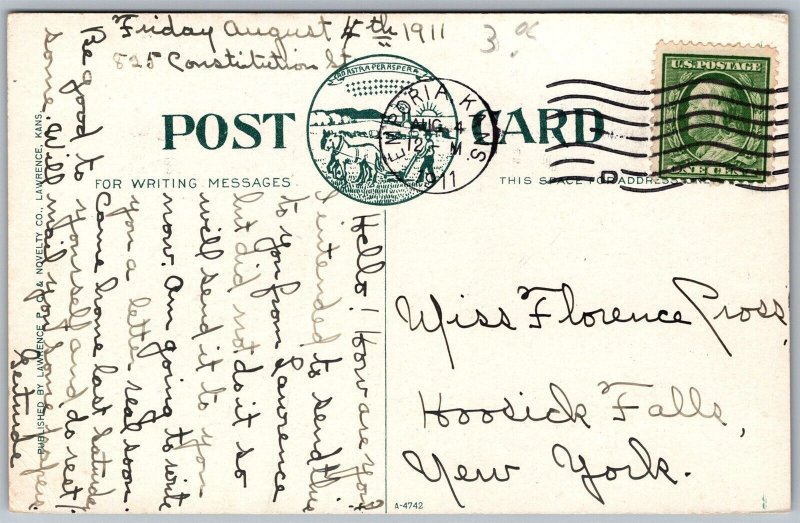 Friday August 4th 1911
825 Constitution St
3
AD ASTRA PER ASPERA
POST CARD
EMPORIA KANS
AUG 4
12 M
1911
D
U.S. POSTAGE
ONE CENT
FOR WRITING MESSAGES
THIS SPACE FOR ADDRESS
Hello! How are you?
I intended to send this
to you from Lawrence
but did not do it so
will send it to you
now. Am going to write
you a letter real soon.
Came home last Saturday
Be good to yourself and do rest!
some. Will mail you some papers.
Gertrude
Miss Florence Cross,
Hoosick Falls,
New York.
A-4742
PUBLISHED BY LAWRENCE P. C. & NOVELTY CO., LAWRENCE, KANS.